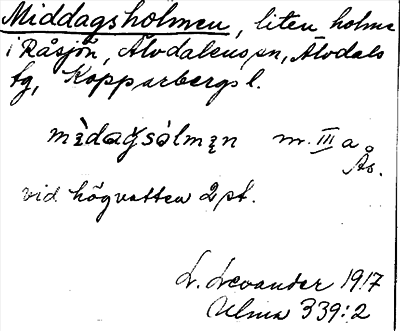 Middagsholmen, liten holme
i Råsjön, Älvdalens sn, Älvdals
tg, Kopparbergs l.
mìdagsòlmęn m. III a
Ås.
vid högvatten 2 st.
L. Levander 1917
Ulma 339:2